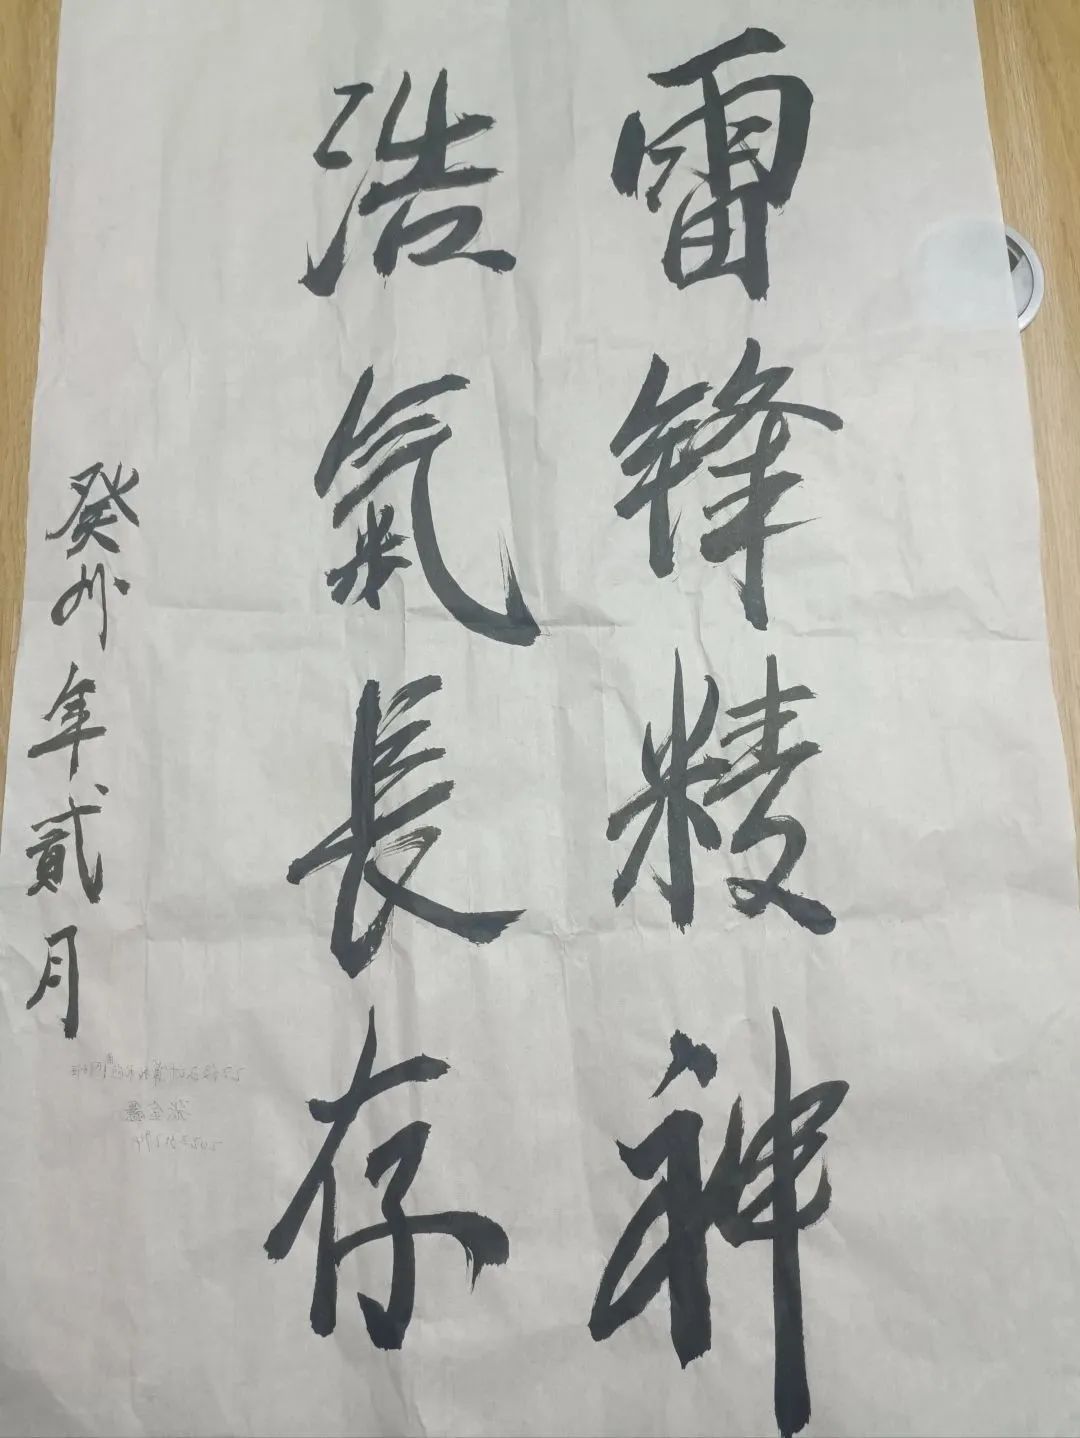 雷锋精神
浩氣長存
癸卯年貳月